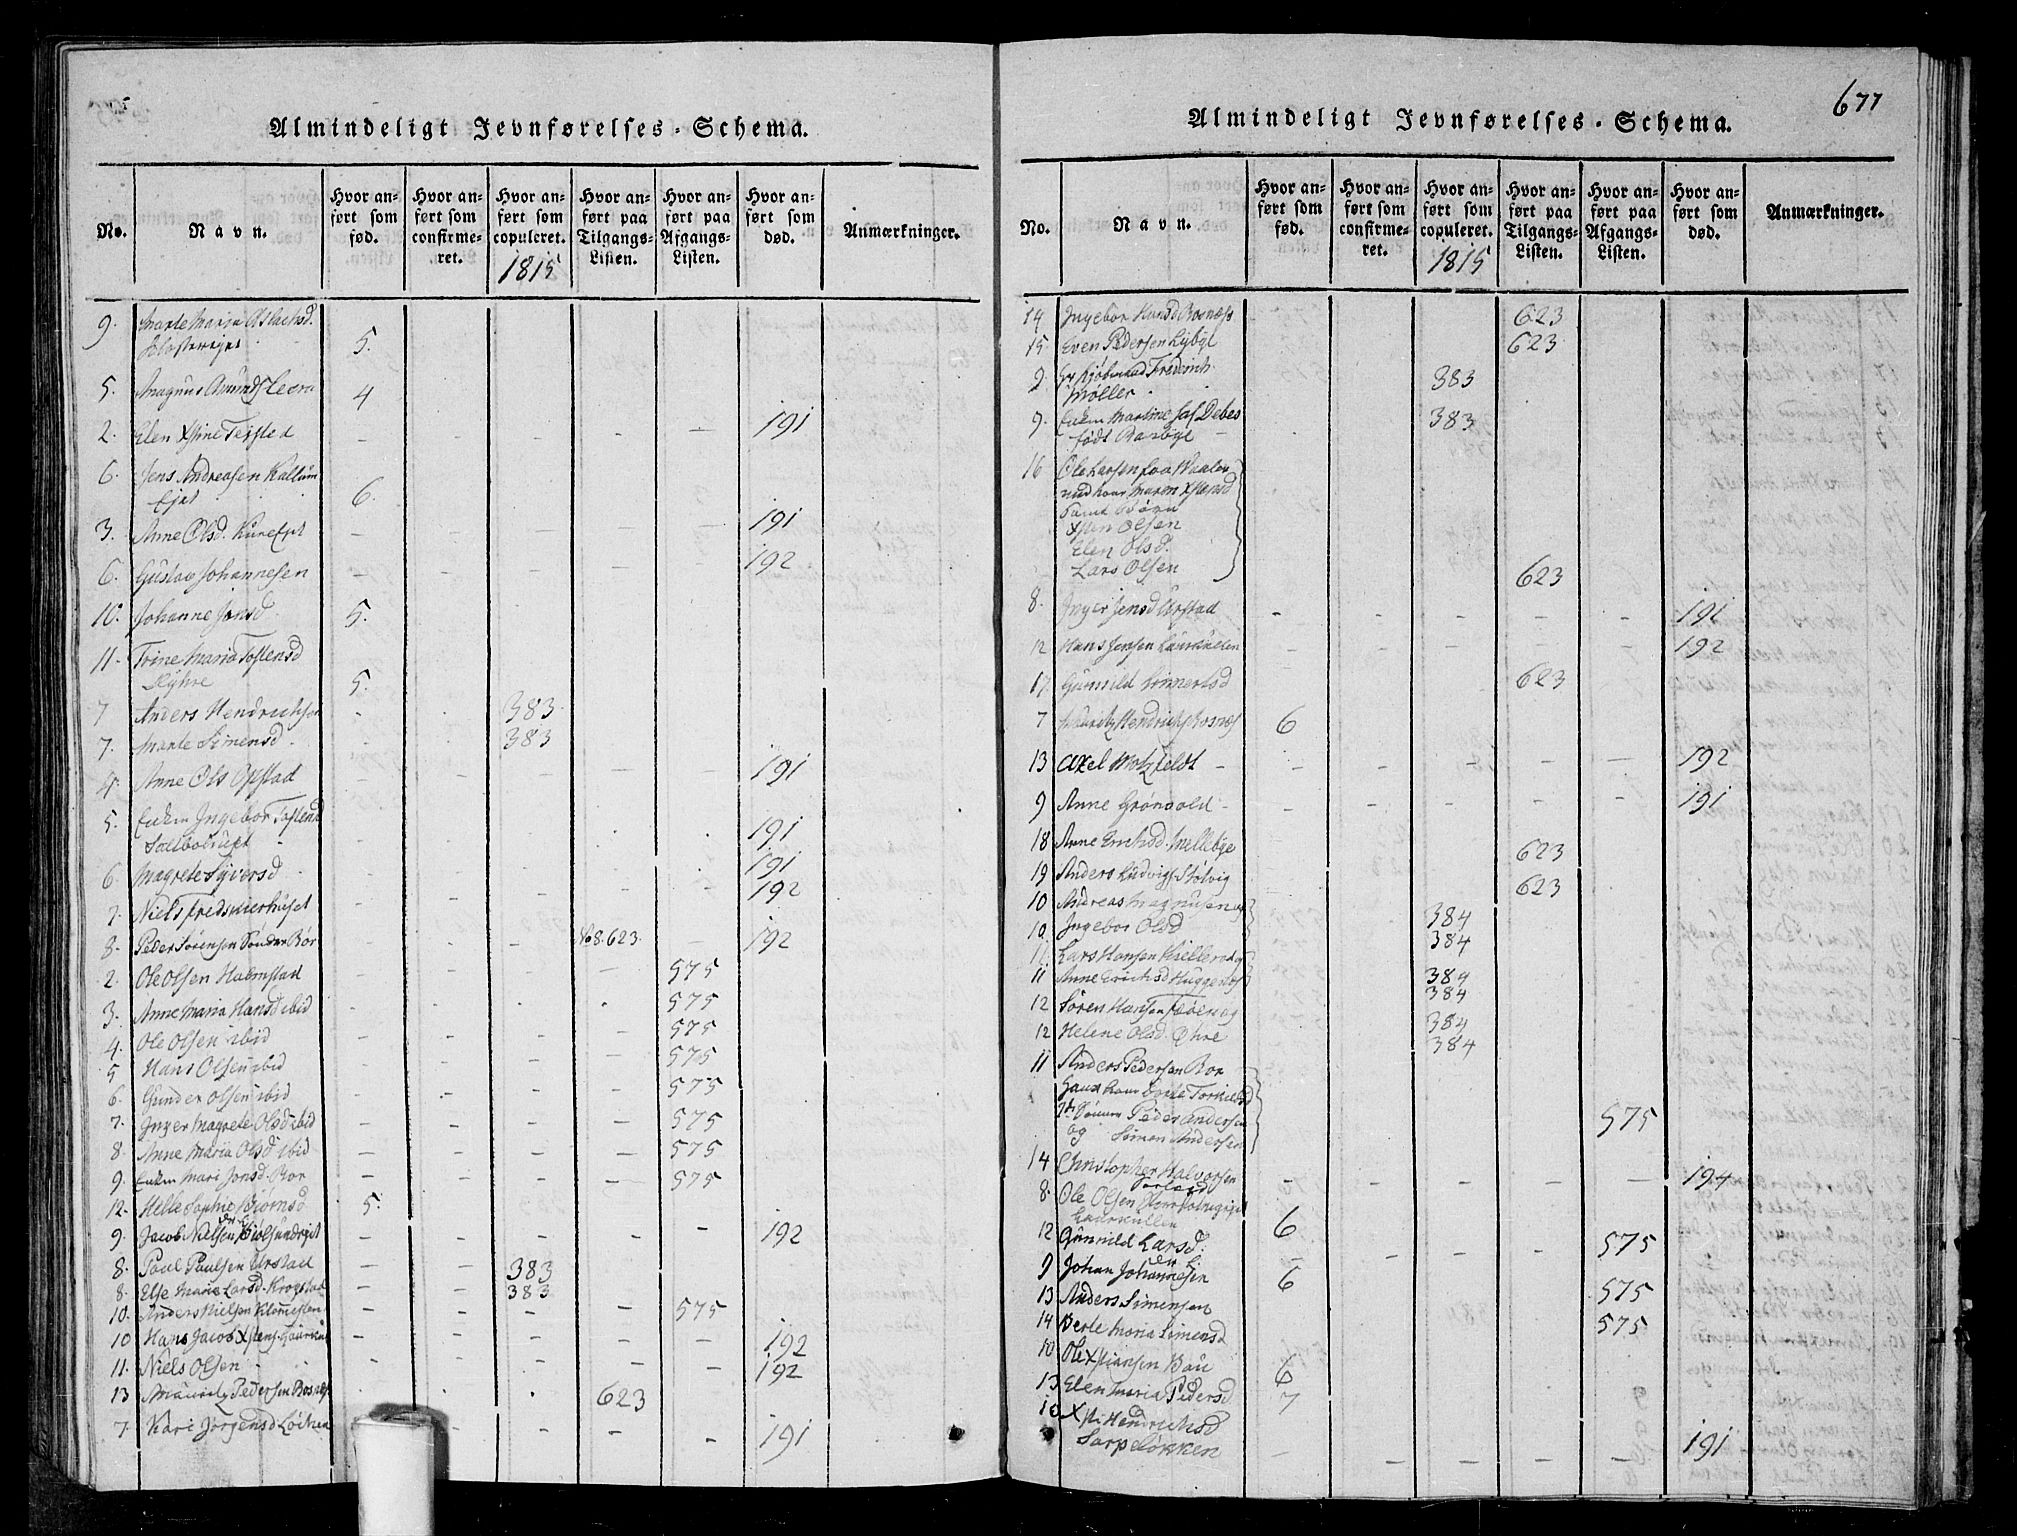 677
Almindeligt Jevnførelses-Schema.
No. Navn. Hvor anført som fød. Hvor anført som confirmeret. Hvor anført som copuleret. Hvor anført paa Tilgangs-Listen. Hvor anført paa Afgangs-Listen. Hvor anført som død. Anmærkninger.
1815
9. Marte Maria Aslachsd.
5.
5. Magnus Amunds
4
2. Elen Xstine Teisted – – – – – 191
6. Jens Andreasen Kallum
Ejet 6.
3. Anne Olsd. – – – – – 191
6. Gustav Johannesen – – – – – 192
10. Johanne Jensd 5.
11. Trine Maria Tostensd
Myhre 5.
7 Anders Hendrichsen - - 383
7. Marte Simensd. - - 383
4. Anne Ols Opstad – – – – – 191
5. Enken Ingebor Tostensd
191
6. Magrete Syversd – – – – – 191
7. Niels – – – – – 192
8. Peder Sørensen Sønder Bør – – – No 8. 623. – 192
2. Ole Olsen Halmstad – – – – 575
3. Anne Maria Hansd ibid – – – – 575
4. Ole Olsen ibid – – – – 575
5 Hans Olsen ibid – – – – 575
6. Gunder Olsen ibid – – – – 575
7. Inger Magrete Olsd ibid – – – – 575
8. Anne Maria Olsd ibid – – – – 575
9. Enken Mari Jonsd. Bor – – – – 575
12. Helle Sophie Biørnsd 5.
9. Jacob Nielsen – – – – – 192
8. Poul Poulsen Urstad – – 383
8. Else Marie Larsd. Krogstad – – 383
10. Anders Nielsen – – – – 575
10 Hans Jacob Xstens. – – – – – 192
11. Niels Olsen – – – – – 192
13 Mauritz Pedersen Rosnæs – – – 623
7. Kari Jørgensd – – – – – 191
Almindeligt Jevnførelses-Schema.
No. Navn. Hvor anført som fød. Hvor anført som confirmeret. Hvor anført som copuleret. Hvor anført paa Tilgangs-Listen. Hvor anført paa Afgangs-Listen. Hvor anført som død. Anmærkninger.
1815
14 Ingebor Hansd Rosnæss 623
15 Even Pedersen Lybye 623
9. Frederich
Møller. 383
9. Enken Martine Debes 383
født Basbye
16 Ole Larsen
Maren Xstensd
samt Børn
Xsten Olsen
Elen Olsd.
Lars Olsen 623
8. Inger Jensd Urstad – – – – – 191
12 Hans Jensen Laurkullen – – – – – 192
17. Gunnild Linnertsd 623
7 Mauritz Hendrichs Rosnæs 6
13 Axel Motzfeldt – – – – – – 192
9 Anne Grønvold – – – – – – 191
18 Anne Erichsd. Mellebye 623
19 Anders Ludvigs. Stølvig 623
10 Andreas Magnusen og 384
10 Ingebor Olsd 384
11 Lars Hansen og 384
11 Anne Erichsd Huggenæs 384
12 Søren Hansen og 384
12 Helene Olsd. Øhre 384
11 Anders Pedersen Bor
Torkildsd
Sønner Peder Andersen 575
og Simon Andersen
14 Christopher Halvorsen – – – – – 194
8. Ole Olsen
Laurkullen 6
12 Gunnild Larsd. – – – – 575
9 Johan Johannesen 6
13 Anders Simensen 575
14 Berte Maria Simensd 575
10 Ole Xstiansen Bau 6
13 Elen Maria Pedersd 7
10 Xsti Hendrichsd
Sarpeløkken – – – – – 191